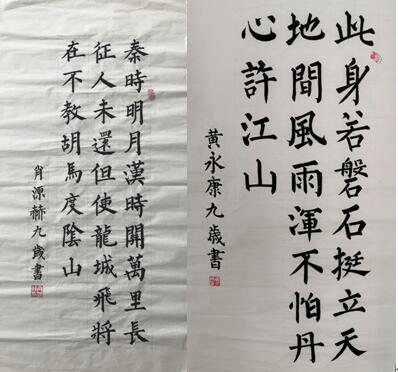 秦時明月漢時關萬里長
征人未還但使龍城飛將
在不教胡馬度陰山
肖源赫九歲書
此身若磐石挺立天
地間風雨渾不怕丹
心許江山
黃永康九歲書